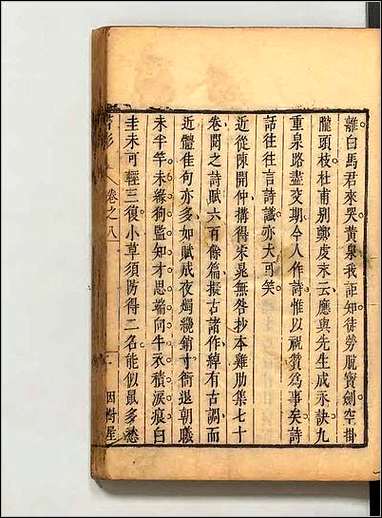 離白馬君來哭黃泉我詎知徒勞脫寶劍空掛
隴頭枝杜甫別鄭虔永云應與先生成永訣九
重泉路盡交期今人作詩惟以祝贊爲事矣詩
話往往言詩讖亦大可笑
近從陳開仲搆得宋晁無咎抄本雞肋集七十
卷閱之詩賦六百餘篇擬古諸作綽有古調而
近體佳句亦多如賦成夜燭纔銷寸衙退朝曦
未半竿未緣狗監知才思端向牛衣積淚痕白
圭未可輕三復小草須防得二名能似鼠多愁
書影
卷之八
一
因樹屋